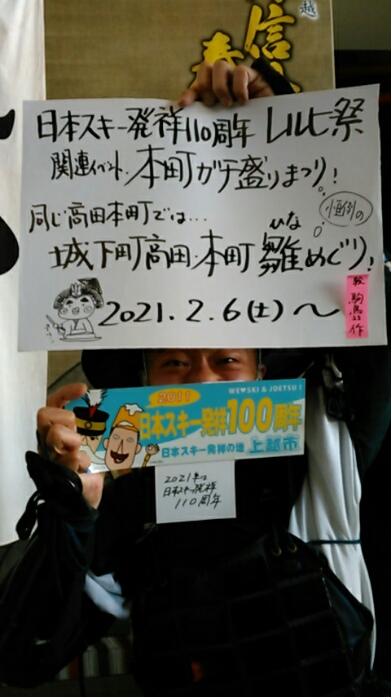 越
信
日本スキー発祥110周年 レルヒ祭
関連イベント:本町ガチ盛りまつり!
同じ高田本町では・・・
恒例の
城下町高田・本町 雛めぐり!
ひな
2021.2.6(土)〜
駒 作
2011
WE♥SKI & JOETSU!
日本スキー発祥100周年
日本スキー発祥の地 上越市
2021年は
日本スキー発祥
110周年